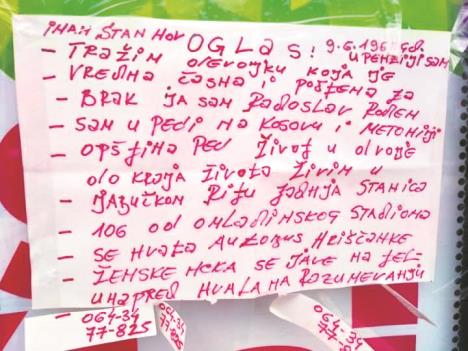 IMAM STAN NOV OGLAS! 9.6.196 god.
U PENZIJI SAM
- TRAŽIM DEVOJKU KOJA JE
- VREDNA ČASNA I POŠTENA ZA
- BRAK JA SAM RADOSLAV ROĐEN
- SAM U PEĆI NA KOSOVU I METOHIJI
- OPŠTINA PEĆ ŽIVOT U DVOJE
DO KRAJA ŽIVOTA ŽIVIM U
- JABUČKOM RITU ZADNJA STANICA
- 106 OD OMLADINSKOG STADIONA
- SE HVATA AUTOBUS HRIŠĆANKE
- ŽENSKE NEKA SE JAVE NA TEL-
UNAPRED HVALA NA RAZUMEVANJU
- 064-34
77-825
064-34
77-825
064-34
77-82